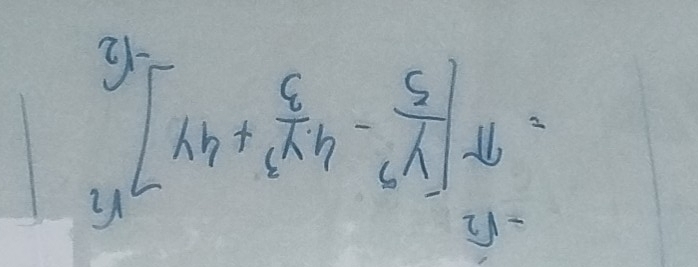 -√2
= π [ y⁵/5 - 4·y³/3 + 4y ] √2
-√2